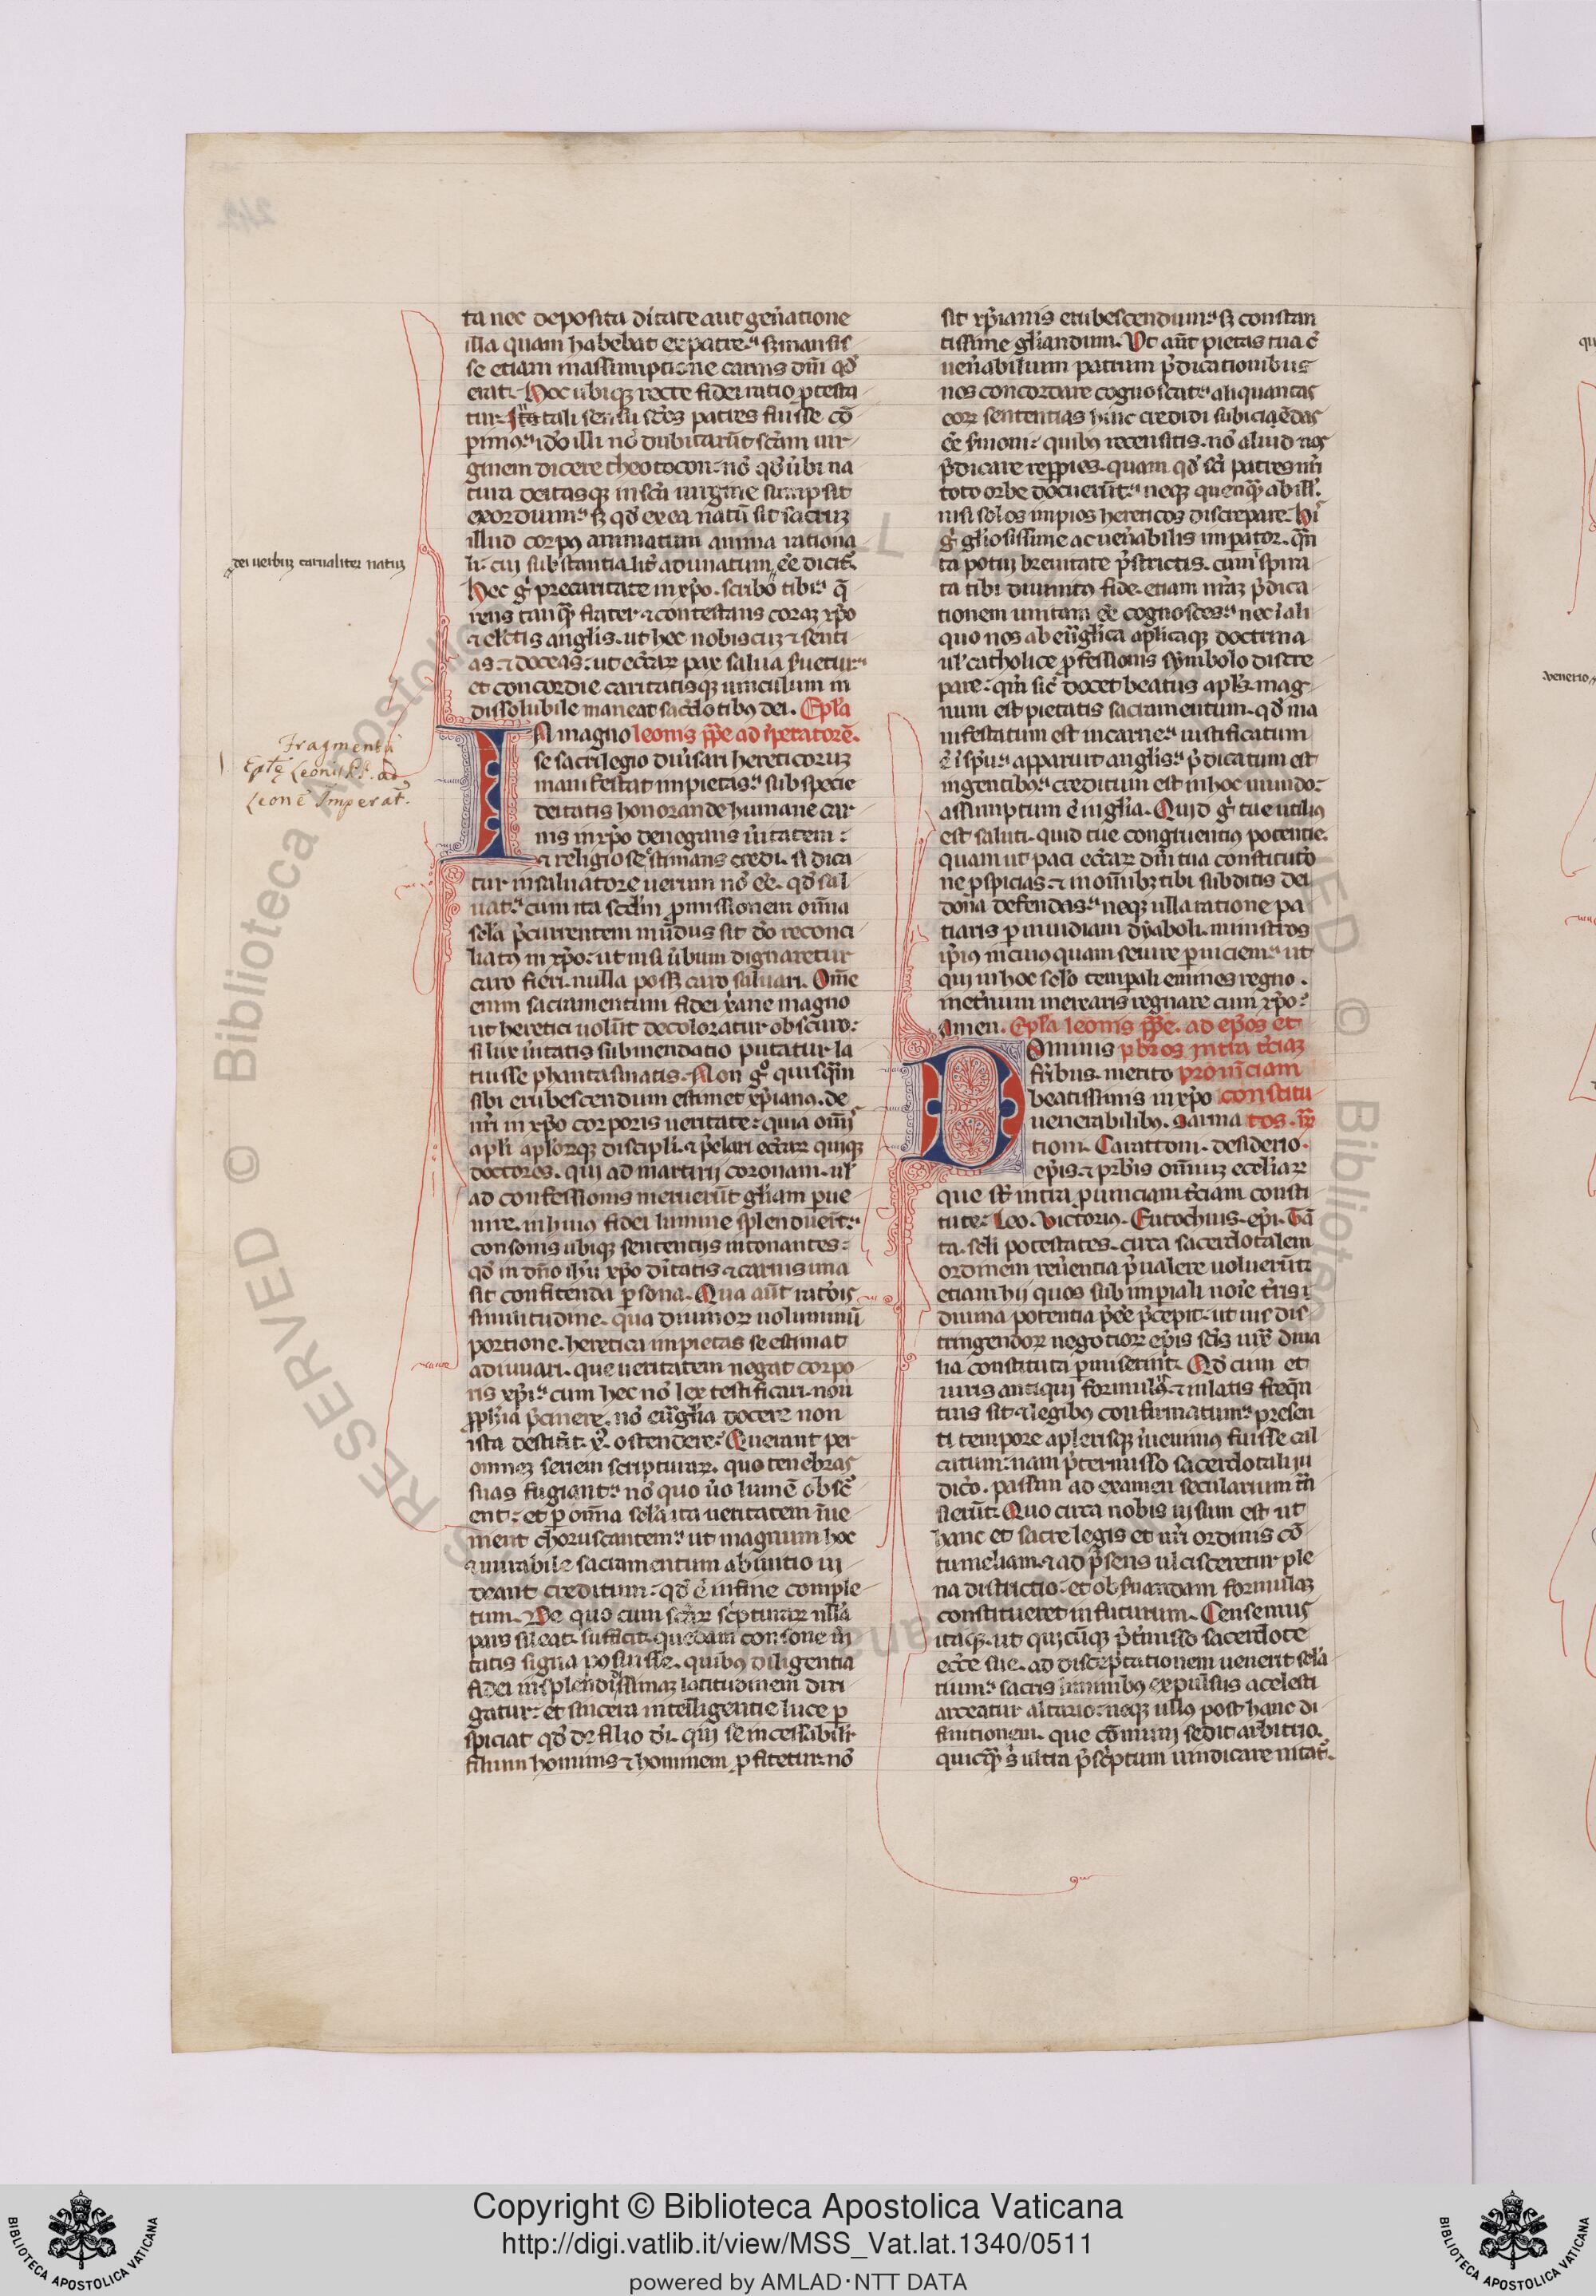 ta nec deposita ditate aut gen̄atione
illa quam habebat ex patre. sꝫ mansis
se etiam in assumptione carnis dn̄i qd̓
erat. Hoc ubiqꝫ recte fidei ratio ꝓtesta
tur. Ita tali sensu sc̄os patres fuisse co
ꝑimus. ido illi nō dubitarūt sc̄am uir
ginem dicere theotocon. nō qd̓ ub̓i na
tura deitasqꝫ in sc̄a uirgine sumpsit
exordium. sꝫ qd̓ ex ea natū sit sacruꝫ
illud corpꝰ animatum anima rationa
li. cui substantialit̓ adunatum ēē dicit̓.
Hec g̓ pre caritate in xp̄o. scribo tibi. q̄
rens tanq̄ frater ⁊ contestans coraꝫ xp̄o
⁊ electis anglis. ut hec nobiscuꝫ ⁊ senti
as. ⁊ doceas. ut ecc̄arꝝ pax salua s̓uetur.
et concordie caritatisqꝫ uinculum in
dissolubile maneat sac̓dotibꝰ dei. Epl̄a
A magno leonis pp̄e ad īperatorē.
se sacrilegio diu̓sari hereticoruꝫ
manifestat impietas. sub specie
deitatis honorande humane car
nis in xp̄o denegans u̓itatem:
⁊ religiose estimans credi. si dica
tur in saluatore uerum nō ēē. qd̓ sal
uat. cum ita scd̄m ꝓmissionem om̄ia
sec̄la p̄currentem mūdus sit d̓o reconci
liatꝰ in xp̄o. ut nisi u̓bum dignaretur
caro fieri. nulla possꝫ caro saluari. Om̄e
enim sacramentum fidei xp̄iane magno
ut heretici uolūt decoloratur obscuro:
si lux u̓itatis sub mendatio putatur la
tuisse phantasmatis. Non g̓ quisq̄m
sibi erubescendum estimet xp̄ianꝰ. de
nr̄i in xp̄o corporis ueritate. quia om̄s
apl̄i apl̄orqꝫ discipl̄i. ⁊ p̄clari ecc̄arꝝ quiqꝫ
doctores. qui ad martirij coronam. ul̓
ad confessionis meruerūt gl̄iam ꝑue
nire. in huiꝰ fidei lumine splenduerūt.
consonis ubiqꝫ sententijs intonantes:
qd̓ in dn̄o ih̄u xp̄o ditatis ⁊ carnis una
sit confitenda ꝑsona. Qua aūt rat̓ōis
similitudine. qua diuinoꝝ uoluminū
portione. heretica impietas se estimat
adiuuari. que ueritatem negat corpo
ris xp̄i. cum hec nō lex testificari. non
ꝓph̄ia p̄cinere. nō eu̓ngl̄ia docere non
ista destitit xp̄s ostendere. Querant per
omneꝫ seriem scripturarꝝ. quo tenebras
suas fugiant. nō quo u̓o lumē obsc̄
ent. et ꝑ om̄ia sec̄la ita ueritatem īue
nient choruscantem. ut magnum hoc
⁊ mirabile sacramentum ab initio ui
deant creditum. qd̓ ē in fine comple
tum. De quo cum sc̄arꝝ sc̓pturarꝝ nl̄la
pars sileat. sufficit quedam consone u̓i
tatis signa posuisse. quibꝰ diligentia
fidei in splendissimaꝫ latitudinem diri
gatur. et sincera intelligentie luce ꝑ
spiciat qd̓ de filio d̓i. qui se incessabilit̓
filium hominis ⁊ hominem ꝓfitetur. nō
dei uerbuꝫ carnaliter natuꝫ
Fragmentū
Eptę Leonis Pp. ad
Leonē Imperat.
sit xp̄ianis erubescendum. sꝫ constan
tissime gl̄iandum. Ut aūt pietas tua cū
uen̓abilium patrum p̄dicationibus
nos concordare cognoscat. aliquantas
eorꝝ sententias hinc credidi subiciēdas
ēē s̓moni. quibꝰ recensitis. nō aliud nos
p̄dicare repp̄ies. quam qd̓ sc̄i patres nr̄i
toto orbe docuerūt. neqꝫ quenq̄ ab ill̓.
nisi solos impios hereticos discrepare. Hi
g̓ gl̄iosissime ac uen̓abilis imp̄ator. q̄n
ta potui breuitate p̄strictis. cum īspira
ta tibi diuinitꝰ fide. etiam nr̄aꝫ p̄dica
tionem unitam ēē cognosces. nec ī ali
quo nos ab eu̓ngl̄ica apl̄icaqꝫ doctrina
ul̓ catholice ꝓfessionis symbolo discre
pare. qm̄ sic̓ docet beatus apl̄s. mag
num est pietatis sacramentum. qd̓ ma
nifestatum est in carne. iustificatum
ē ī sp̄u. apparuit anglis. p̄dicatum est
in gentibꝰ. creditum est in hoc mundo.
assumptum ē in gl̄ia. Quid g̓ tue utiliꝰ
est saluti. quid tue congruentiꝰ potentie.
quam ut paci ecc̄arꝝ dn̄i tua constitut̓o
ne ꝓspicias. ⁊ in om̄ibꝫ tibi subditis dei
dona defendas. neqꝫ ulla ratione pa
tiaris ꝑ inuidiam dyaboli. ministros
ip̄ius in cuiusquam seuire ꝑniciem. ut
qui in hoc sec̄lo temꝑali emines regno.
in et̓num merearis regnare cum xp̄o.
Amen. Epl̄a leonis pp̄e. ad ep̄os et
Ominis p̄bros intra t̓ciaꝫ
fr̄ibus. merito prouīciam
beatissimis in xp̄o constitu
uenerabilibꝰ. Sarma tos.
tioni. Carattoni. desiderio.
ep̄is. ⁊ p̄rbis om̄iuꝫ eccl̓iarꝝ
que sūt intra ꝓuinciam t̓ciam consti
tute. Leo. Victoriꝰ. Eutochius. ep̄i. Tā
ta. sec̄li potestates. circa sacerdotalem
ordinem reu̓entia p̄ualere uoluerūt.
etiam hij quos sub imꝑiali noīe t̓ris
diuina potentia p̄ēē p̄cepit. ut ius dis
tringendoꝝ negotiorꝝ ep̄is sc̄is iux̄ diua
lia constituta ꝑmiserint. Qd̓ cum et
iuris antiqui formulꝰ. ⁊ in latis freq̄n
tius sit ⁊ legibꝰ confirmatum. presen
ti tempore a plerisqꝫ īuenimꝰ fuisse cal
catum. nam p̄termisso sacerdotali iu
dic̓o. passim ad examen secularium t̄n
sierūt. Quo circa nobis uisum est ut
hanc et sacre legis et nr̄i ordinis cō
tumeliam. ⁊ ad p̄sens ulcisceretur ple
na districtio. et obs̓uandam formulaꝫ
constitueret in futurum. Censemus
itaqꝫ. ut quicūqꝫ p̄t̓misso sacerdote
ecc̄e sue. ad disceptationem uenerit sec̄la
rium. sacris liminibꝰ expulsus a celesti
arceatur altario. neqꝫ ullꝰ post hanc di
finitionem. que cōmuni sedit arbitrio.
quicq̄ s̓ ultra p̄sc̓ptum uindicare nitat̓.
Copyright © Biblioteca Apostolica Vaticana
http://digi.vatlib.it/view/MSS_Vat.lat.1340/0511
powered by AMLAD·NTT DATA